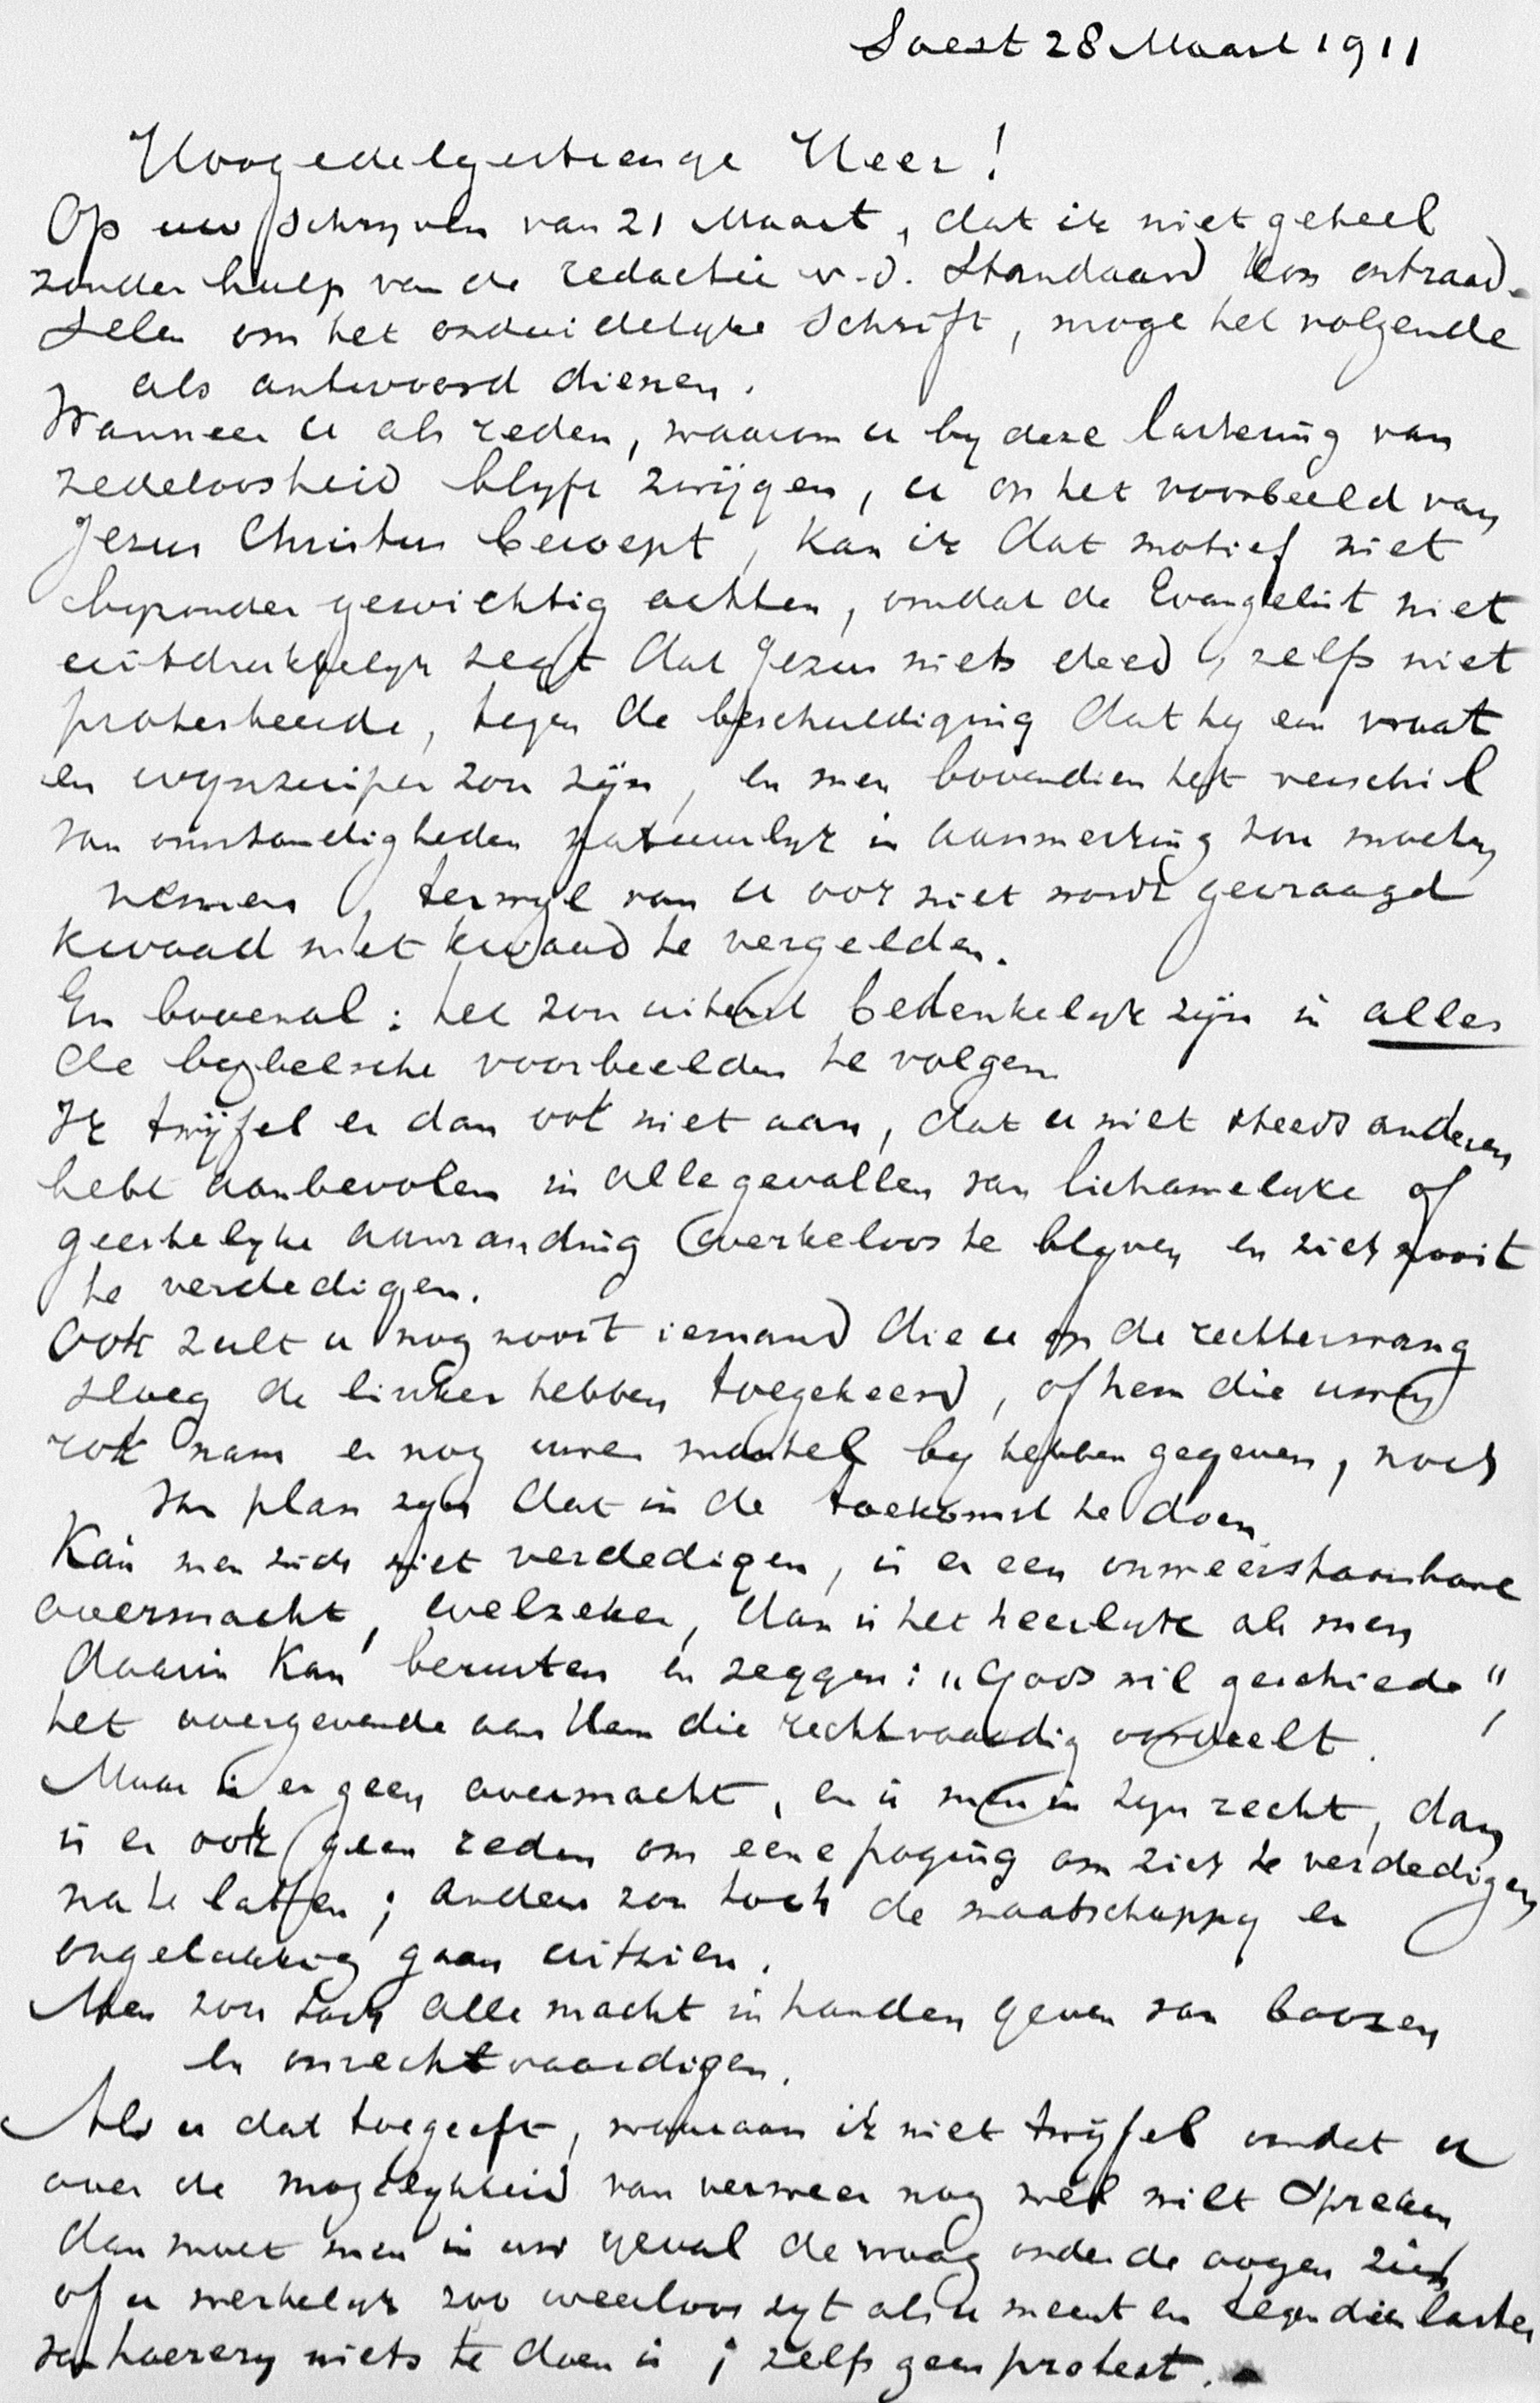 Soest 28 Maart 1911
Hoogedelgestrenge Heer!
Op uw schryven van 21 Maart, dat ik niet geheel
zonder hulp van de redactie v.d. Standaard kon ontraad-
selen om het onduidelyke schrift, moge het volgende
als antwoord dienen.
Wanneer u als reden, waarom u by deze lastering van
zedeloosheid blyft zwijgen, u op het voorbeeld van
Jezus Christus beroept, kan ik dat motief niet
byzonder gewichtig achten, omdat de Evangelist niet
uitdrukkelyk zegt dat Jezus niets deed, zelfs niet
protesteerde, tegen de beschuldiging dat hy een vraat
en wynzuiper zou zijn, en men bovendien het verschil
van omstandigheden natuurlyk in aanmerking zou moeten
nemen, terwyl van u ook niet wordt gevraagd
kwaad met kwaad te vergelden.
En bovenal: het zou uiterst bedenkelyk zijn in alles
de bybelsche voorbeelden te volgen
Ik twijfel er dan ook niet aan, dat u niet steeds anderen
hebt aanbevolen in alle gevallen van lichamelyke of
geestelyke aanranding werkeloos te blyven en zich nooit
te verdedigen.
Ook zult u nog nooit iemand die u op de rechterwang
sloeg de linker hebben toegekeerd, of hem die uwen
rok nam er nog uwen mantel by hebben gegeven, noch
van plan zyn dat in de toekomst te doen
Kan men zich niet verdedigen, is er een onweerstaanbare
overmacht, welzeker, dan is het heerlyk als men
daarin kan berusten en zeggen: "Gods wil geschiede",
het overgevende aan Hem die rechtvaardig oordeelt.
Maar is er geen overmacht, en is men in zyn recht, dan
is er ook geen reden om eene poging om zich te verdedigen
na te laten; anders zou toch de maatschappy er
ongelukkig gaan uitzien.
Men zou toch alle macht in handen geven van boozen
en onrechtvaardigen.
Als u dat toegeeft, waaraan ik niet twijfel omdat u
over de mogelykheid van verweer nog wel wilt spreken
dan moet men in uw geval de vraag onder de oogen zien
of u werkelyk zoo weerloos zyt als u meent en tegen dien laster
van hoerery niets te doen is; zelfs geen protest.